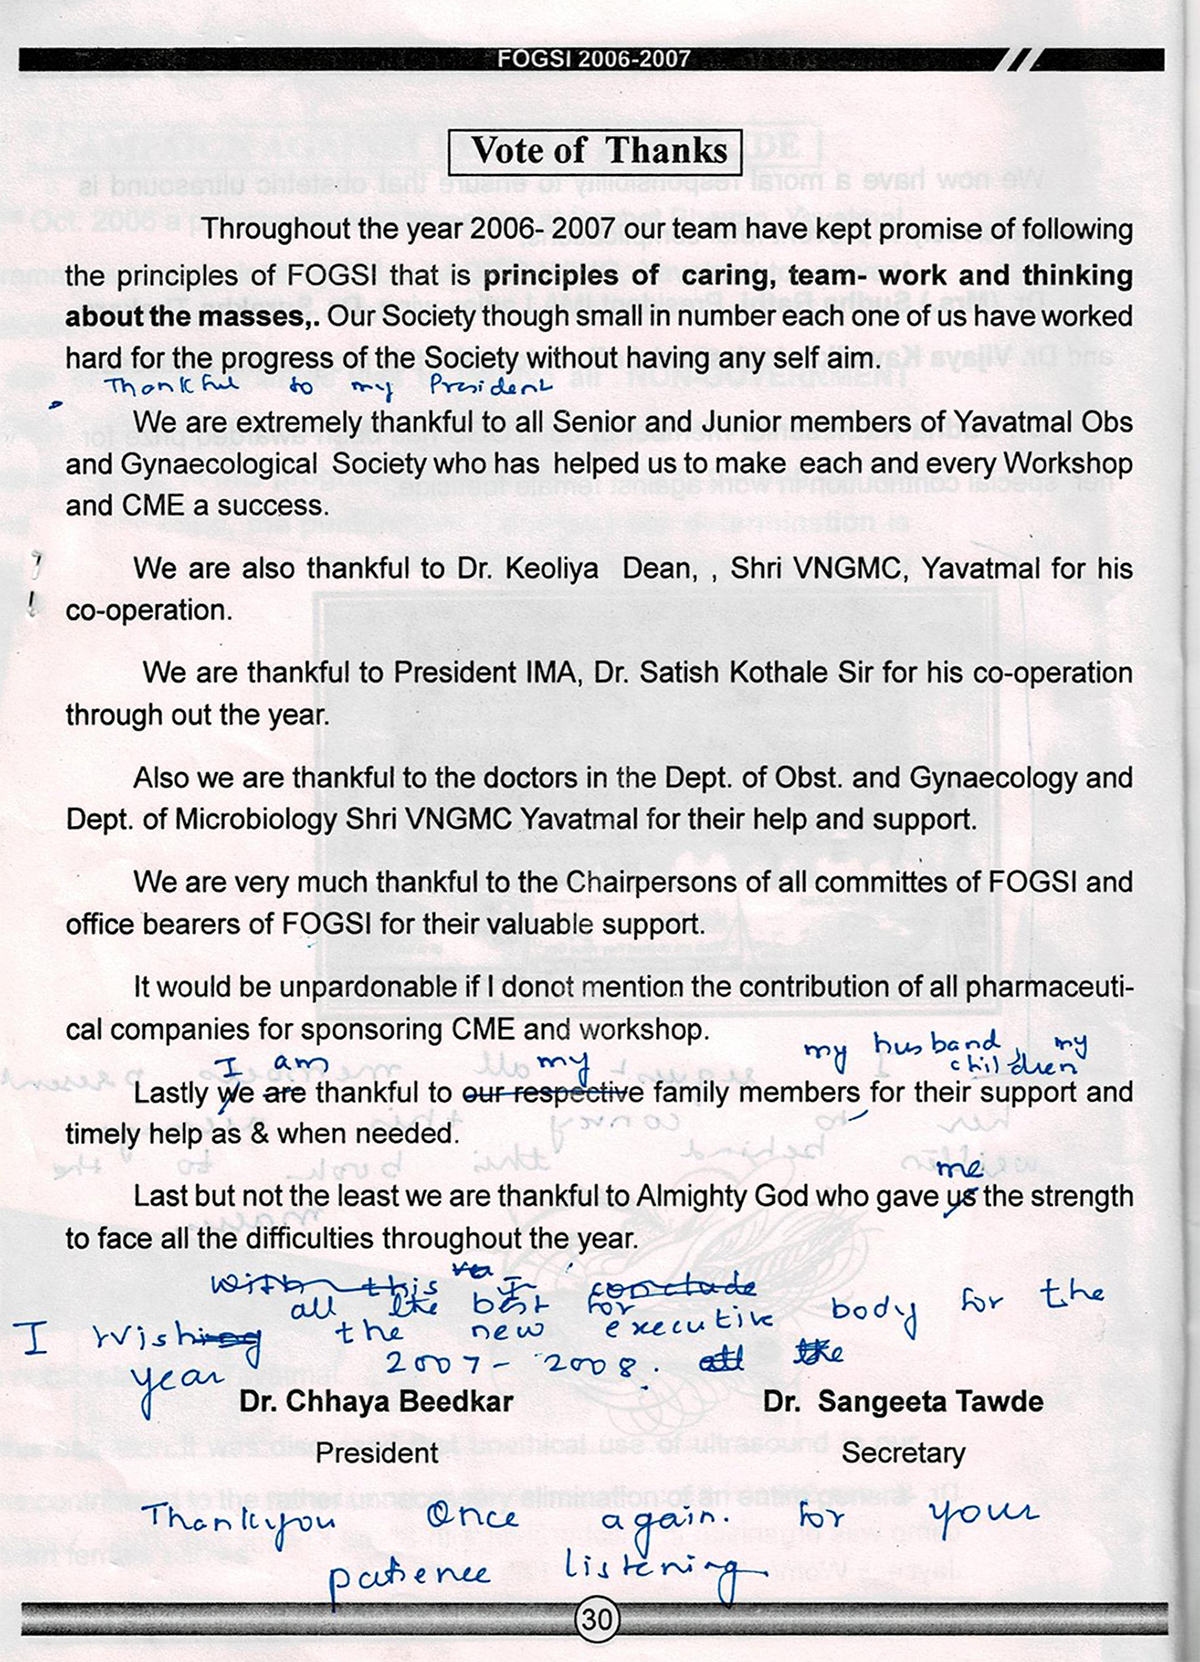 FOGSI 2006-2007
Vote of Thanks
Throughout the year 2006- 2007 our team have kept promise of following
the principles of FOGSI that is principles of caring, team- work and thinking
about the masses,. Our Society though small in number each one of us have worked
hard for the progress of the Society without having any self aim.
Thankful to my President
We are extremely thankful to all Senior and Junior members of Yavatmal Obs
and Gynaecological Society who has helped us to make each and every Workshop
and CME a success.
We are also thankful to Dr. Keoliya Dean, , Shri VNGMC, Yavatmal for his
co-operation.
We are thankful to President IMA, Dr. Satish Kothale Sir for his co-operation
through out the year.
Also we are thankful to the doctors in the Dept. of Obst. and Gynaecology and
Dept. of Microbiology Shri VNGMC Yavatmal for their help and support.
We are very much thankful to the Chairpersons of all committes of FOGSI and
office bearers of FOGSI for their valuable support.
It would be unpardonable if I donot mention the contribution of all pharmaceuti-
cal companies for sponsoring CME and workshop.
I am my my husband, my
children
Lastly we are thankful to our respective family members for their support and
timely help as & when needed.
me
Last but not the least we are thankful to Almighty God who gave us the strength
to face all the difficulties throughout the year.
With this I conclude
all the best for
I wishing the new executive body for the
year 2007- 2008. all the
Dr. Chhaya Beedkar Dr. Sangeeta Tawde
President Secretary
Thankyou Once again. for your
patience listening.
30